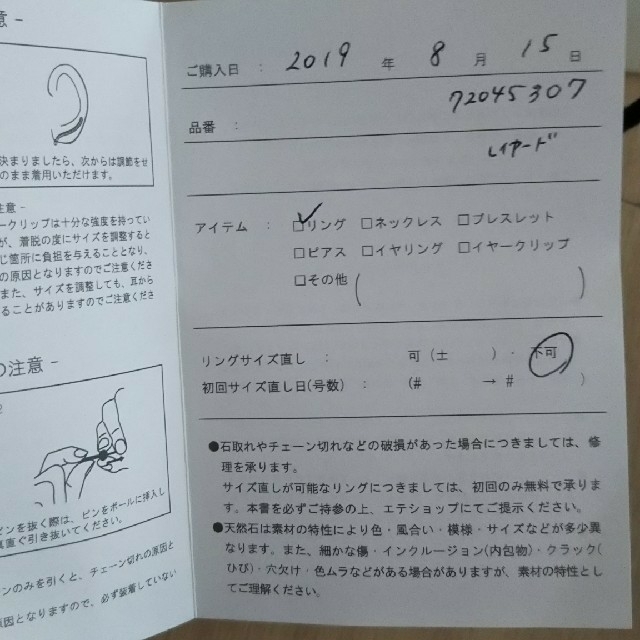 意 -
決まりましたら、次からは調節をせ
のまま着用いただけます。
注意 -
ークリップは十分な強度を持ってい
が、着脱の度にサイズを調整すると
じ箇所に負担を与えることとなり、
の原因となりますのでご注意くださ
また、サイズを調整しても、耳から
ることがありますのでご注意くださ
の注意 -
ピンを抜く際は、ピンをボールに挿入し
真直ぐ引き抜いてください。
ンのみを引くと、チェーン切れの原因と
原因となりますので、必ず装着していない
ご購入日 : 2019 年 8 月 15 日
品番 : 72045307
レイヤード
アイテム : □リング □ネックレス □ブレスレット
□ピアス □イヤリング □イヤークリップ
□その他 ( )
リングサイズ直し : 可(± )・不可
初回サイズ直し日(号数) : (# → # )
●石取れやチェーン切れなどの破損があった場合につきましては、修
理を承ります。
サイズ直しが可能なリングにつきましては、初回のみ無料で承りま
す。本書を必ずご持参の上、エテショップにてご提示ください。
●天然石は素材の特性により色・風合い・模様・サイズなどが多少異
なります。また、細かな傷・インクルージョン(内包物)・クラック(
ひび)・穴欠け・色ムラなどがある場合がありますが、素材の特性とし
てご理解ください。